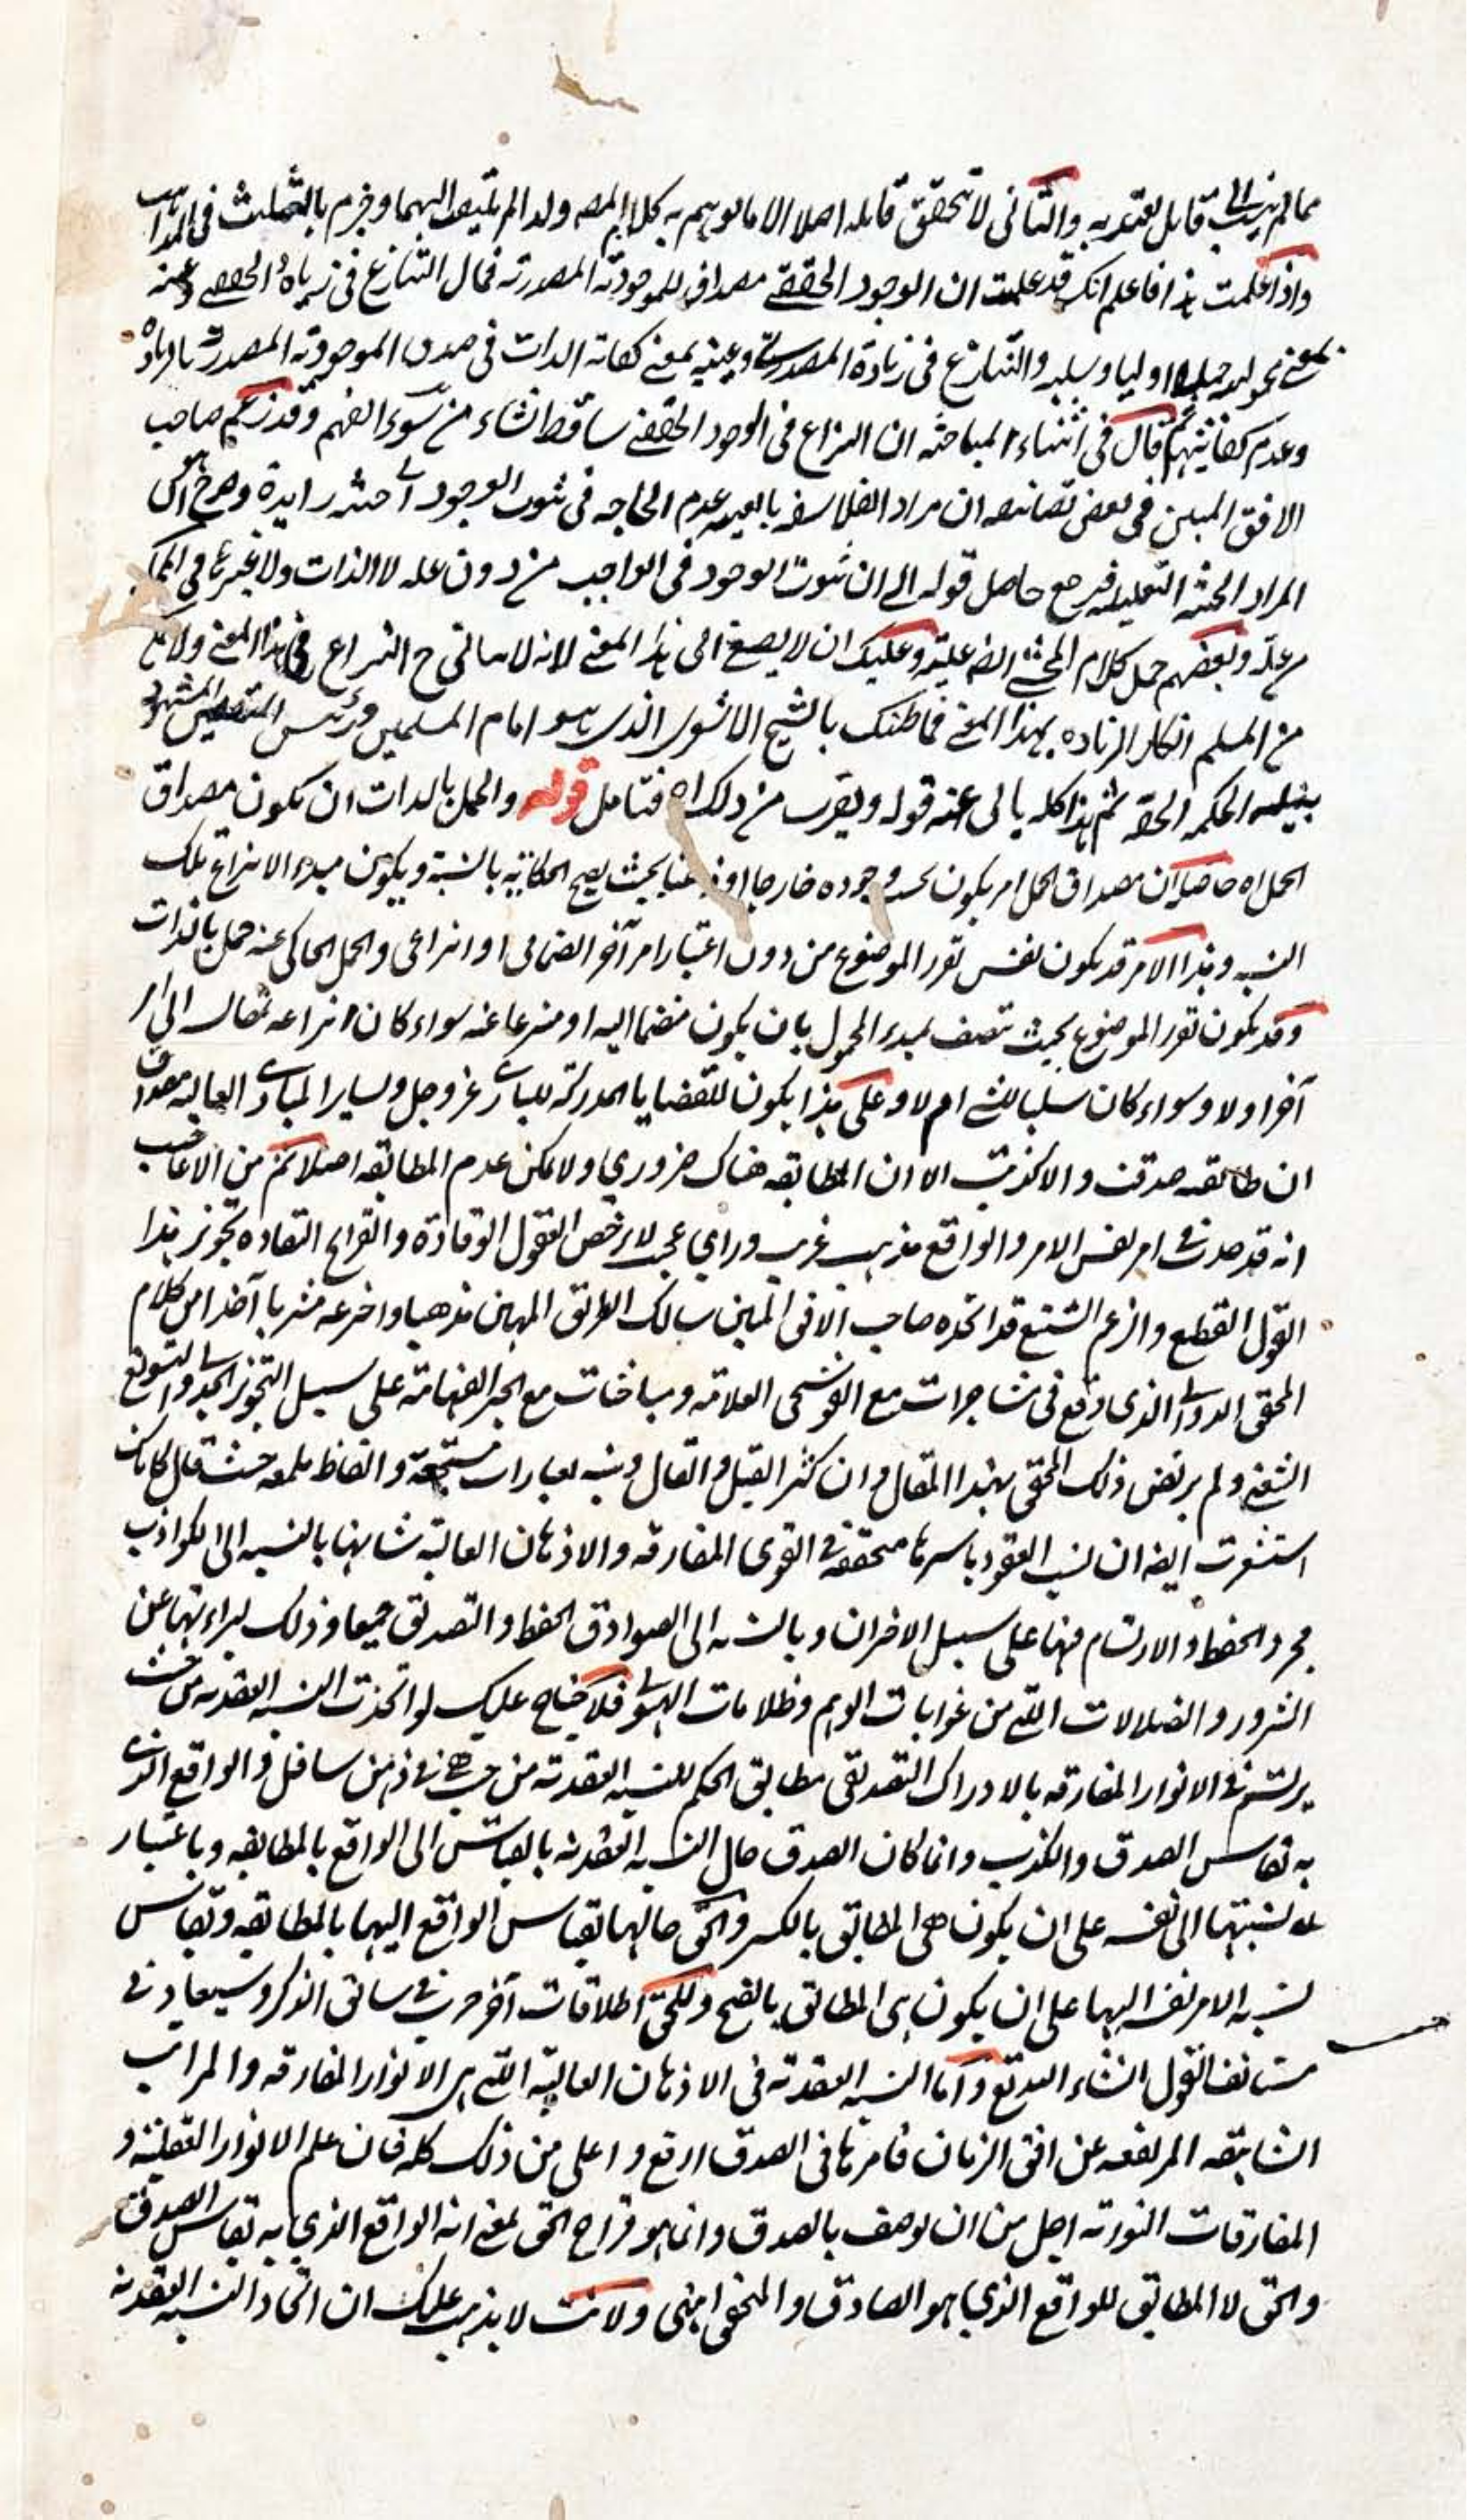 مما لم ينسب الى قابل يعتد به والثانى لا تحقق قابله اصلا الا ما يوهم به كلام المصـ ولذا لم يلتفت اليهما وجزم بالتثليث فى المذاهب
واذا علمت هذا فاعلم انك قد علمت ان الوجود الحقيقے مصداق للموجودية المصدرية فمال التنازع فى زيادة الحقيقے وعينه
بمعنے محمولية حملا اوليا وسلبه والتنازع فى زيادة المصدرية وعينيه بمعنے كفاية الذات فى صدق الموجودية المصدرية بالزيادة
وعدم كفايتها فما قال فى اثناء المباحثه ان النزاع فى الوجود الحقيقے ساقط انشاء من سوء الفهم وقد زعم صاحب
الافق المبين فى بعض تصانيفه ان مراد الفلاسفه بالعينيه عدم الحاجه فى ثبوت الوجود الى حيثيه زايدة وصرح ان
المراد الحيثيه التعليليه فيرجع حاصل قوله الى ان ثبوت الوجود فى الواجب من دون عله لا الذات ولا غيرها فى الممكن
مع علة وبعضهم حمل كلام المحشے ايضا عليه وعليك ان لا يصغى الى هذا المعنے لانه لا يتاتى ح النزاع فى هذا المعنے ولا يصح
من المسلم انكار الزياده بهذا المعنے فما ظنك بالشيخ الاشعرى الذى هو امام المسلمين ورئيس المتقين المشهود
بنيله الحكمه الحقه ثم هذا كله يابى عنه قوله ويقرب من ذلك اه فتامل قوله والحمل بالذات ان يكون مصداق
الحمل اه حاصله ان مصداق الحمل امر يكون بحسب وجوده خارجا او ذهنا بحيث يصح الحكاية بالنسبة ويكون مبدء الانتزاع تلك
النسبه وهذا الامر قد يكون نفس تقرر الموضوع من دون اعتبار امر آخر انضمامى او انتزاعى والحمل الحاكى عنه حمل بالذات
وقد يكون تقرر الموضوع بحيث يتصف بمبدء المحمول بان يكون منضما اليه او منتزعا عنه سواء كان انتزاعه بمقايسه الى امر
آخر او لا وسواء كان سلبا لشے ام لا وعلى هذا يكون للقضايا المدركة للبارے عز وجل ولساير المبادے العاليه مصداق
ان طابقته صدقت والا كذبت الا ان المطابقه هناك ضرورى ولا يمكن عدم المطابقه اصلا ثم من الاعاجيب
انه قد حدث فے امر نفس الامر والواقع مذهب غريب وراى عجب لا يرخص العقول الوقادة والقرايح النقاده تجويز هذا
القول الفظيع والزعم الشنيع قد اتخذه صاحب الافق المبين سالك الطريق المهين مذهبا واخترعه مشربا آخذا من كلام
المحقق الدوانے الذى وقع فى مشاجرات مع القوشجى العلامه ومباحثات مع الحبر الفهامه على سبيل التجويز الجدلے والتسويغ
الشغبى ولم يرتض ذلك المحقق بهذا المقال وان كثر القيل والقال وبينه بعبارات مسجعة والفاظ ملمعه حيث قال كانك
استشعرت ايضا ان نسب العقود باسرها متحققة فے القوى المفارقه والاذهان العالية شانها بالنسبه الى الكواذب
مجرد الحفظ والارتسام فيها على سبيل الاختزان وبالنسبه الى الصوادق الحفظ والتصديق جميعا وذلك لبراءتها عن
الشرور والضلالات التے من غوايات الوهم وظلامات الهيولے فلا جناح عليك لو اتخذت النسبه العقديه من حيث
يرتسم فے الانوار المفارقه بالادراك التصديقى مطابق الحكم للنسبه العقدية من حيث هے فے ذهن سافل والواقع الذے
به تقاس الصدق والكذب وانما كان الصدق حال النسبه العقديه بالقياس الى الواقع بالمطابقه وباعتبار
نسبتها الى نفسه على ان يكون هے المطابق بالكسر والحق حالها بقياس الواقع اليها بالمطابقه وتقاس
نسبه الامر نفسه اليها على ان يكون هى المطابق بالفتح وللحق اطلاقات آخر مرت فے سابق الذكر وسيعاد فے
مستانف القول انشاء الله تع واما النسبه العقديه فى الاذهان العالية التے هى الانوار المفارقه والمراتب
الشاهقه المرتفعه عن افق الزمان فامرها فى الصدق ارفع واعلى من ذلك كله فان علم الانوار العقلية و
المفارقات النوريه اجل من ان يوصف بالصدق وانما هو قراح الحق بمعنے انه الواقع الذى به تقاس الصدق
والحق لا المطابق للواقع الذى هو الصادق والمتحقق انتهى ولانت لا يذهب عليك ان اتخاذ النسبه العقديه